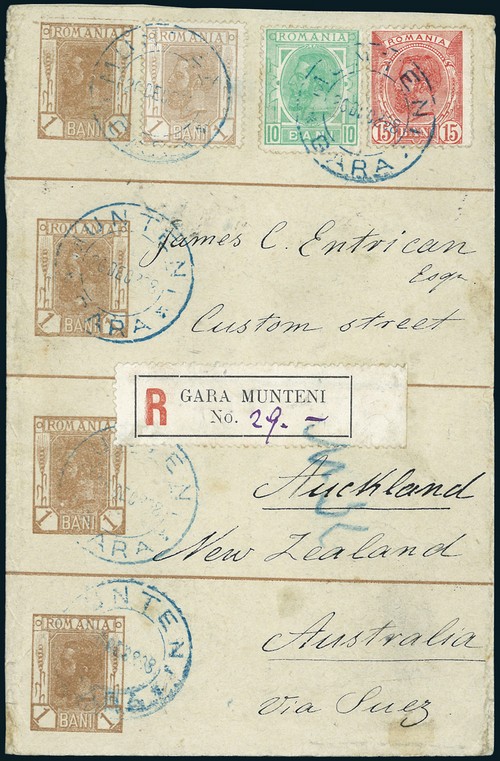 ROMANIA
1 BANI 1
ROMANIA
1 BANI 1
ROMANIA
10 BANI 10
ROMANIA
15 BANI 15
MUNTENI
GARA
ROMANIA
1 BANI 1
MUNTENI
GARA
James C. Entrican
Esqu.
Custom street
R GARA MUNTENI
No. 29.-
ROMANIA
1 BANI 1
GARA
Auckland
New Zealand
ROMANIA
1 BANI 1
MUNTENI
Australia
via Suez